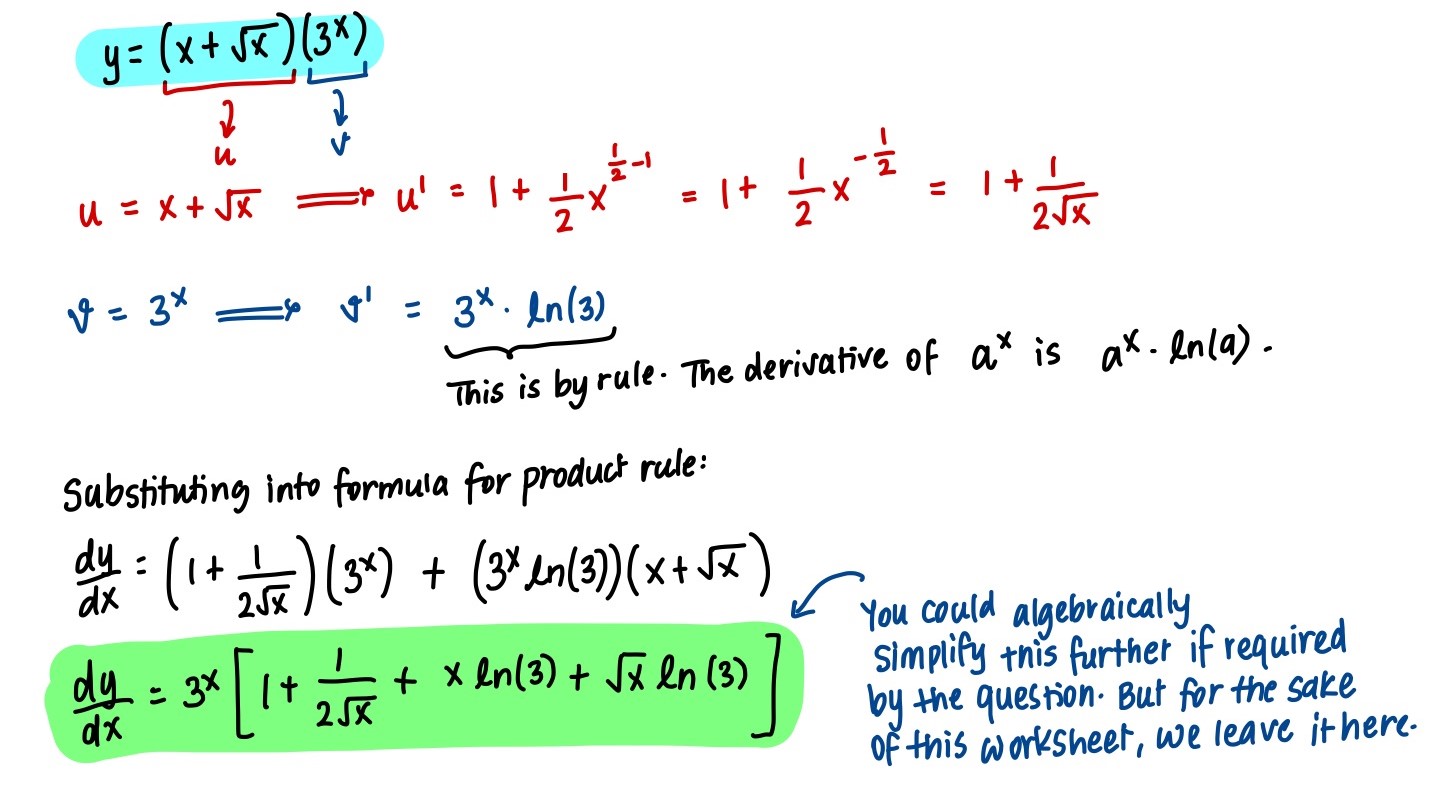 y = (x + √x)(3ˣ)
u v
u = x + √x ⟹ u' = 1 + 1/2 x^(1/2 - 1) = 1 + 1/2 x^(-1/2) = 1 + 1/(2√x)
v = 3ˣ ⟹ v' = 3ˣ · ln(3)
This is by rule. The derivative of aˣ is aˣ · ln(a).
Substituting into formula for product rule:
dy/dx = (1 + 1/(2√x))(3ˣ) + (3ˣ ln(3))(x + √x)
dy/dx = 3ˣ [1 + 1/(2√x) + x ln(3) + √x ln(3)]
You could algebraically
simplify this further if required
by the question. But for the sake
of this worksheet, we leave it here.